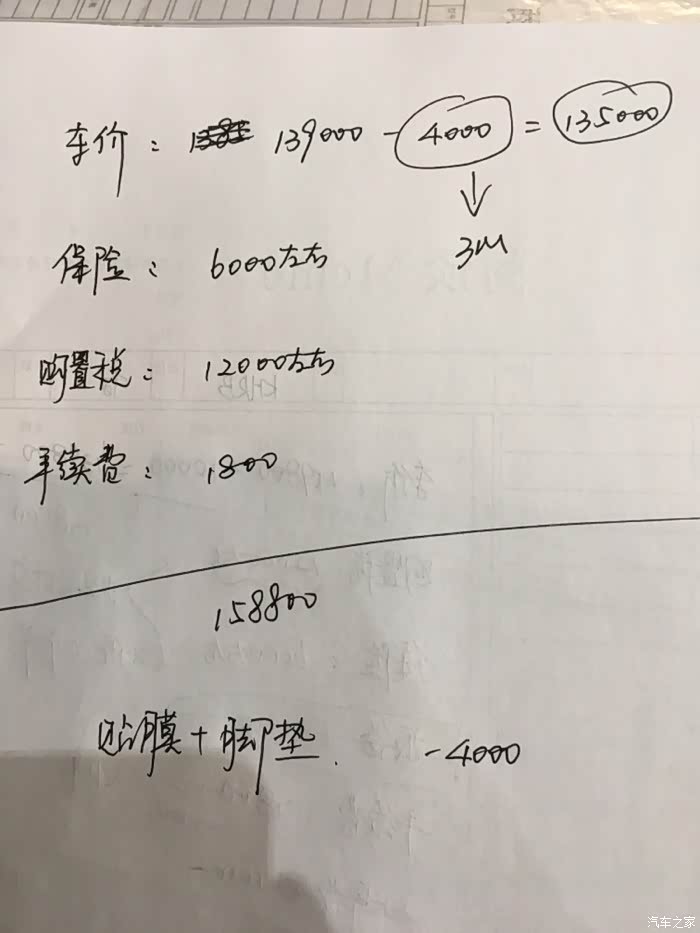 车价： 139000 - 4000 = 135000
↓
3M
保险： 6000左右
购置税： 12000左右
手续费： 1800
158800
贴膜 + 脚垫. -4000
汽车之家